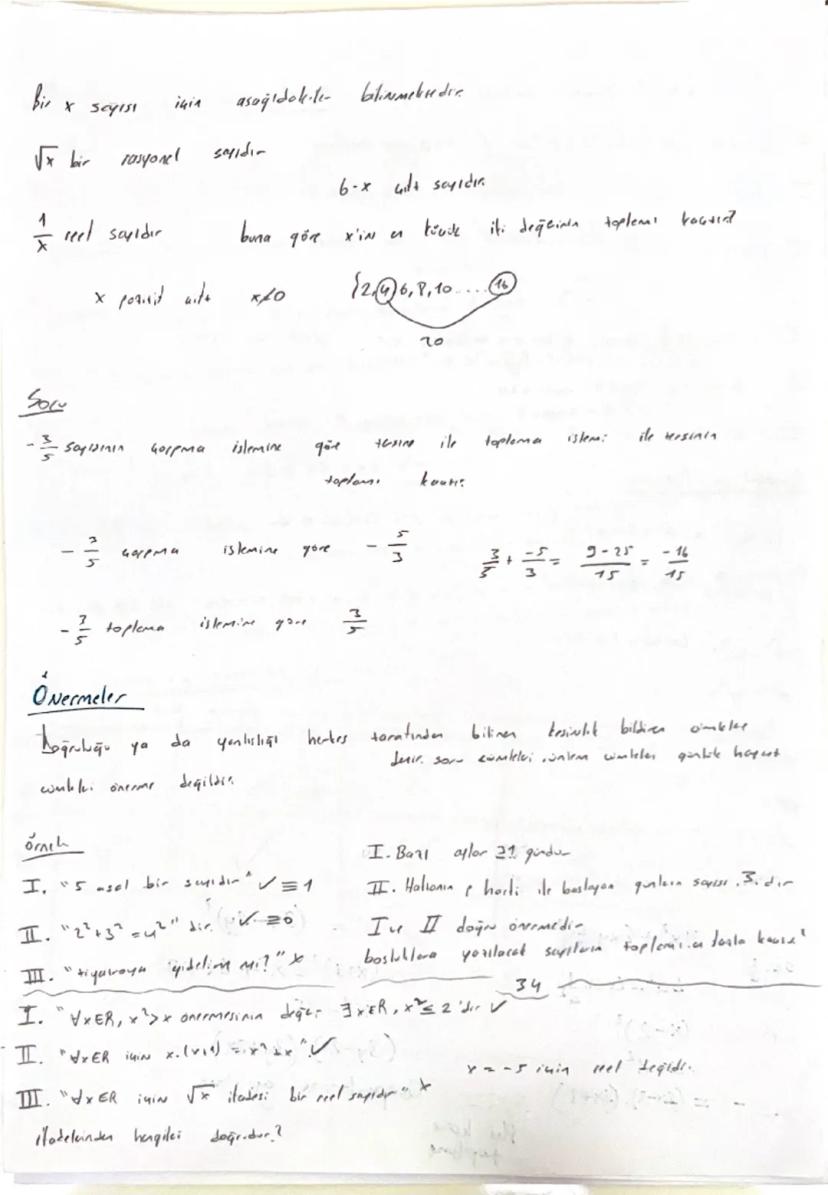 Bir x sayısı için aşağıdakiler bilinmektedir.
√x bir rasyonel sayıdır
6-x çift sayıdır.
1/x reel sayıdır buna göre x'in en küçük iki değerinin toplamı kaçtır?
x pozitif çift x≠0 {2,4,6,8,10.....16
20
Soru
-3/5 sayısının çarpma işlemine göre tersine ile toplama işlemi ile tersinin
toplamı kaçtır.
-3/5 çarpma işlemine göre -5/3 3/5 + -5/3 = 9-25/15 = -16/15
-3/5 toplama işlemine göre 3/5
Önermeler
Doğruluğu ya da yanlışlığı herkes tarafından bilinen kesinlik bildiren cümleler
denir. soru cümleleri, ünlem cümleler günlük hayat
önerme değildir.
örnek
I. "5 asal bir sayıdır" ✓ ≡ 1
II. "2²+3²=4²" dir. ✓ ≡ 0
III. "tiyatroya gidelim mi?" x
I. Bazı aylar 31 gündür
II. Haftanın p harfi ile başlayan günlerin sayısı .3. dir
I ve II doğru önermedir
boşluklara yazılacak sayıların toplamı en fazla kaçtır?
34
I. "∀x∈R, x²>x önermesinin değili ∃x∈R, x²≤2'dir ✓
II. "∀x∈R için x.(x+1) = x²+x" ✓
x=-5 için reel değildir.
III. "∀x∈R için √x ifadesi bir reel sayıdır" x
ifadelerinden hangileri doğrudur?